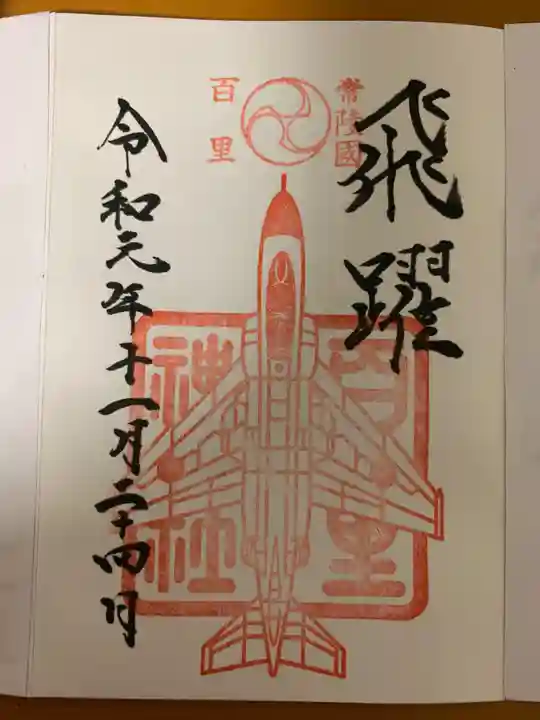 飛躍
常陸國
百里
百里
神社
令和元年十一月二十四日